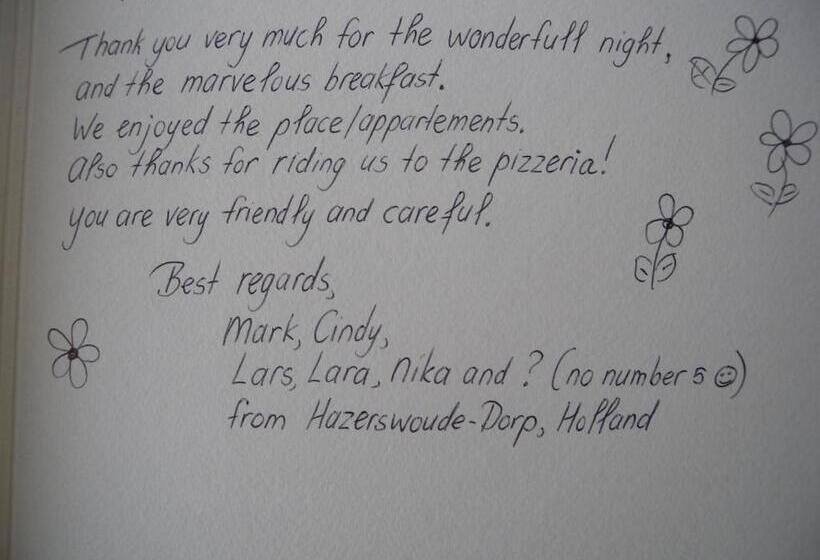 Thank you very much for the wonderfull night,
and the marvelous breakfast.
We enjoyed the place/appartements.
Also thanks for riding us to the pizzeria!
you are very friendly and careful.
Best regards,
Mark, Cindy,
Lars, Lara, Nika and ? (no number 5 ☺)
from Hazerswoude-Dorp, Holland